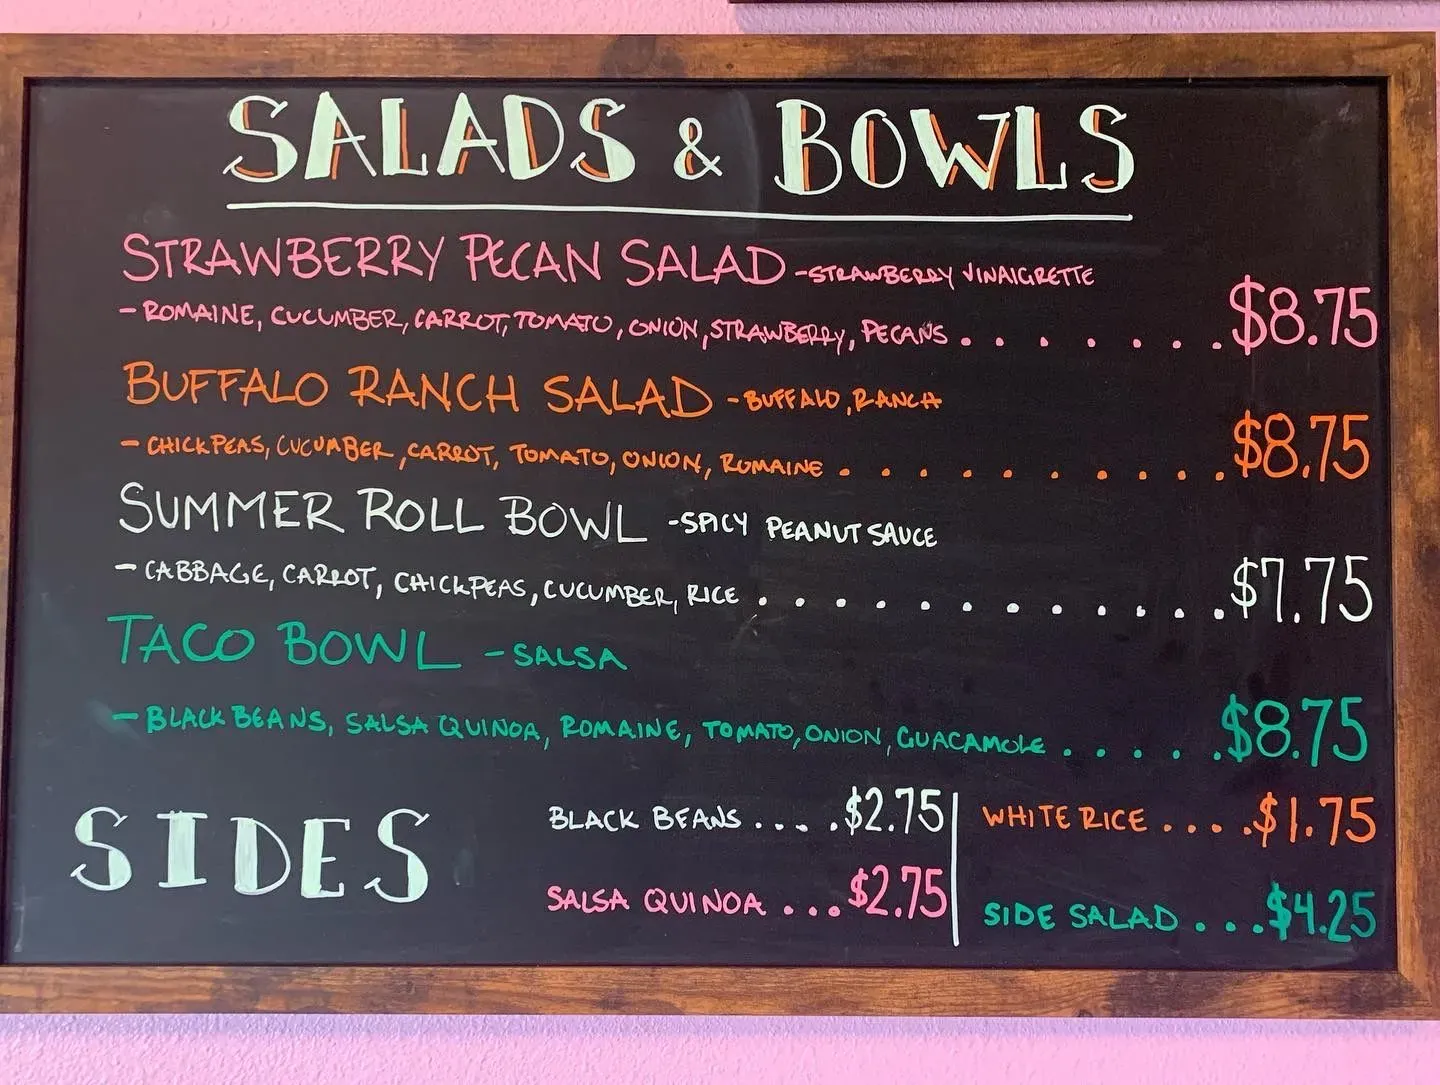 SALADS & BOWLS
STRAWBERRY PECAN SALAD -STRAWBERRY VINAIGRETTE
- ROMAINE, CUCUMBER, CARROT, TOMATO, ONION, STRAWBERRY, PECANS . . . . . . . $8.75
BUFFALO RANCH SALAD - BUFFALO, RANCH
- CHICKPEAS, CUCUMBER, CARROT, TOMATO, ONION, ROMAINE . . . . . . . . . . $8.75
SUMMER ROLL BOWL -SPICY PEANUT SAUCE
- CABBAGE, CARROT, CHICKPEAS, CUCUMBER, RICE . . . . . . . . . . . . $7.75
TACO BOWL - SALSA
- BLACK BEANS, SALSA QUINOA, ROMAINE, TOMATO, ONION, GUACAMOLE . . . . . $8.75
SIDES
BLACK BEANS . . . . . $2.75
SALSA QUINOA . . . $2.75
WHITE RICE . . . . . $1.75
SIDE SALAD . . . $4.25